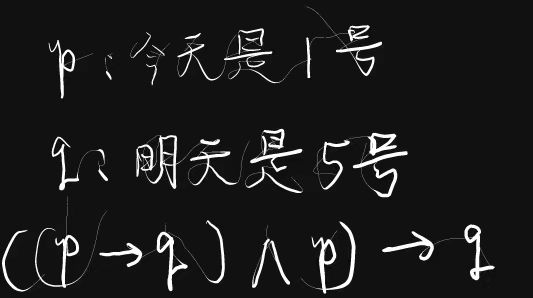 p：今天是1号
q：明天是5号
((p→q)∧p)→q